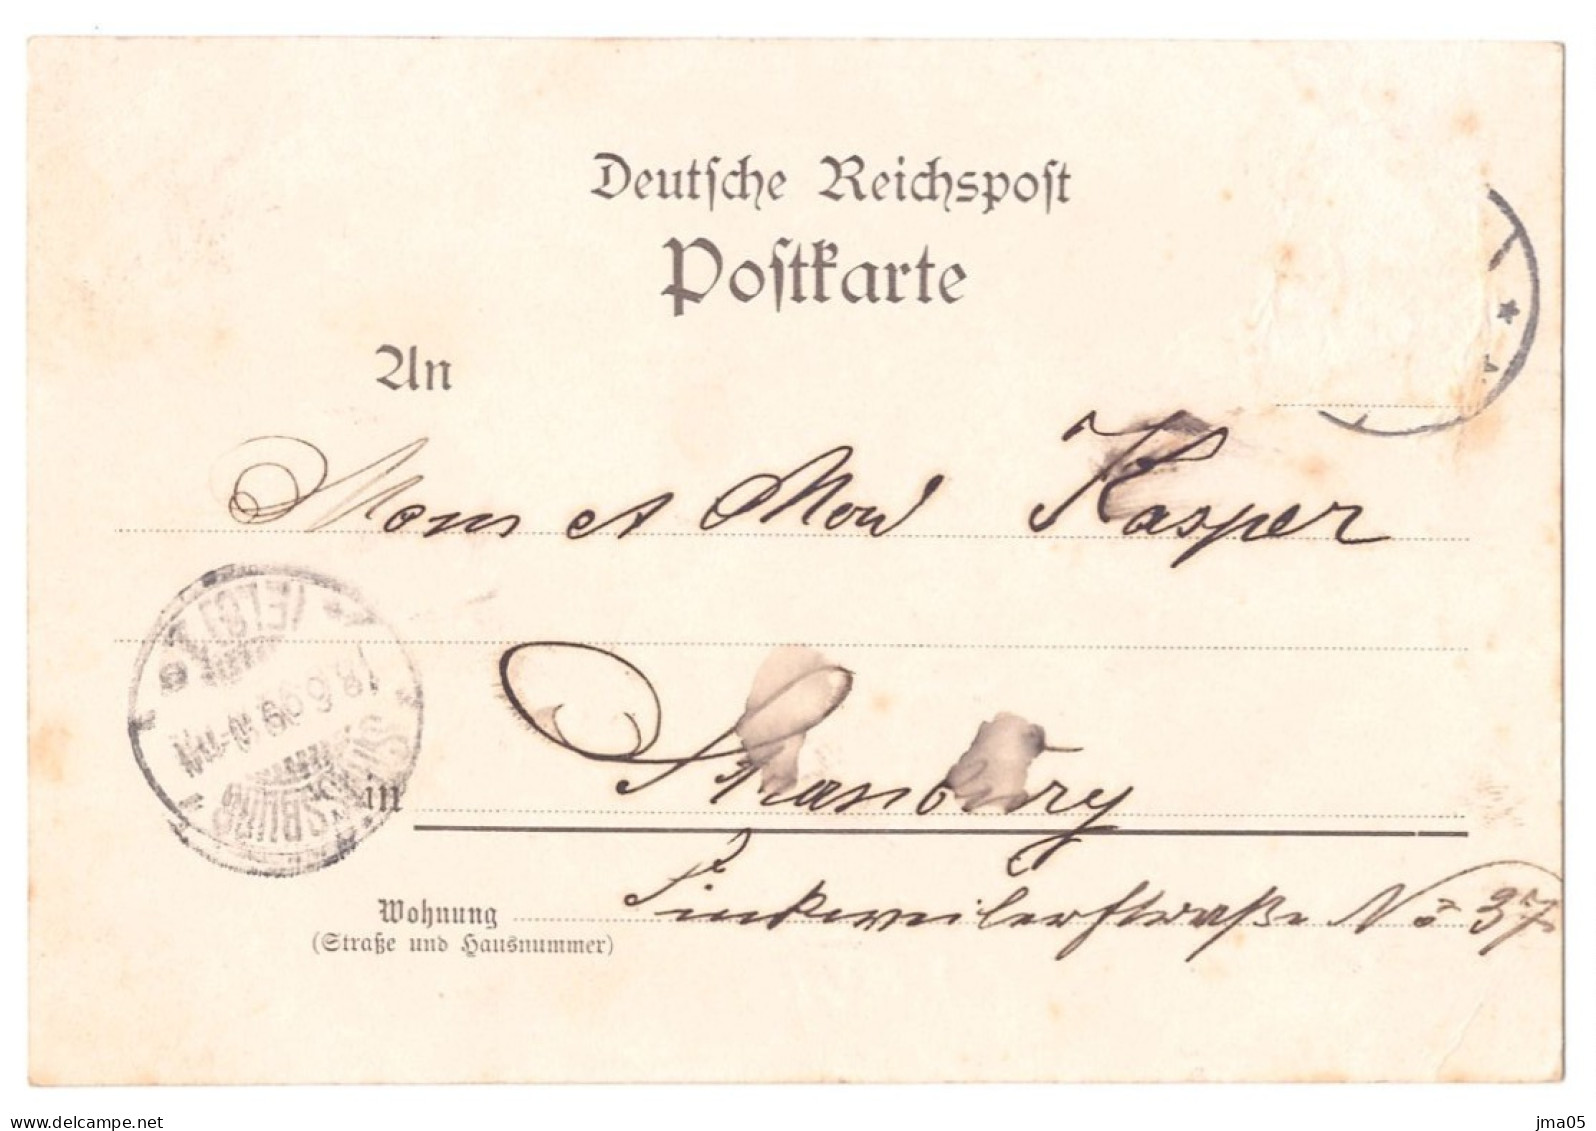 Deutsche Reichspost
Postkarte
An
Mons et Mad Kasper
in Strasbourg
Finkweilerstraße No 37
Wohnung
(Straße und Hausnummer)
STRASSBURG
(ELS)
18.6.99
www.delcampe.net
jma05